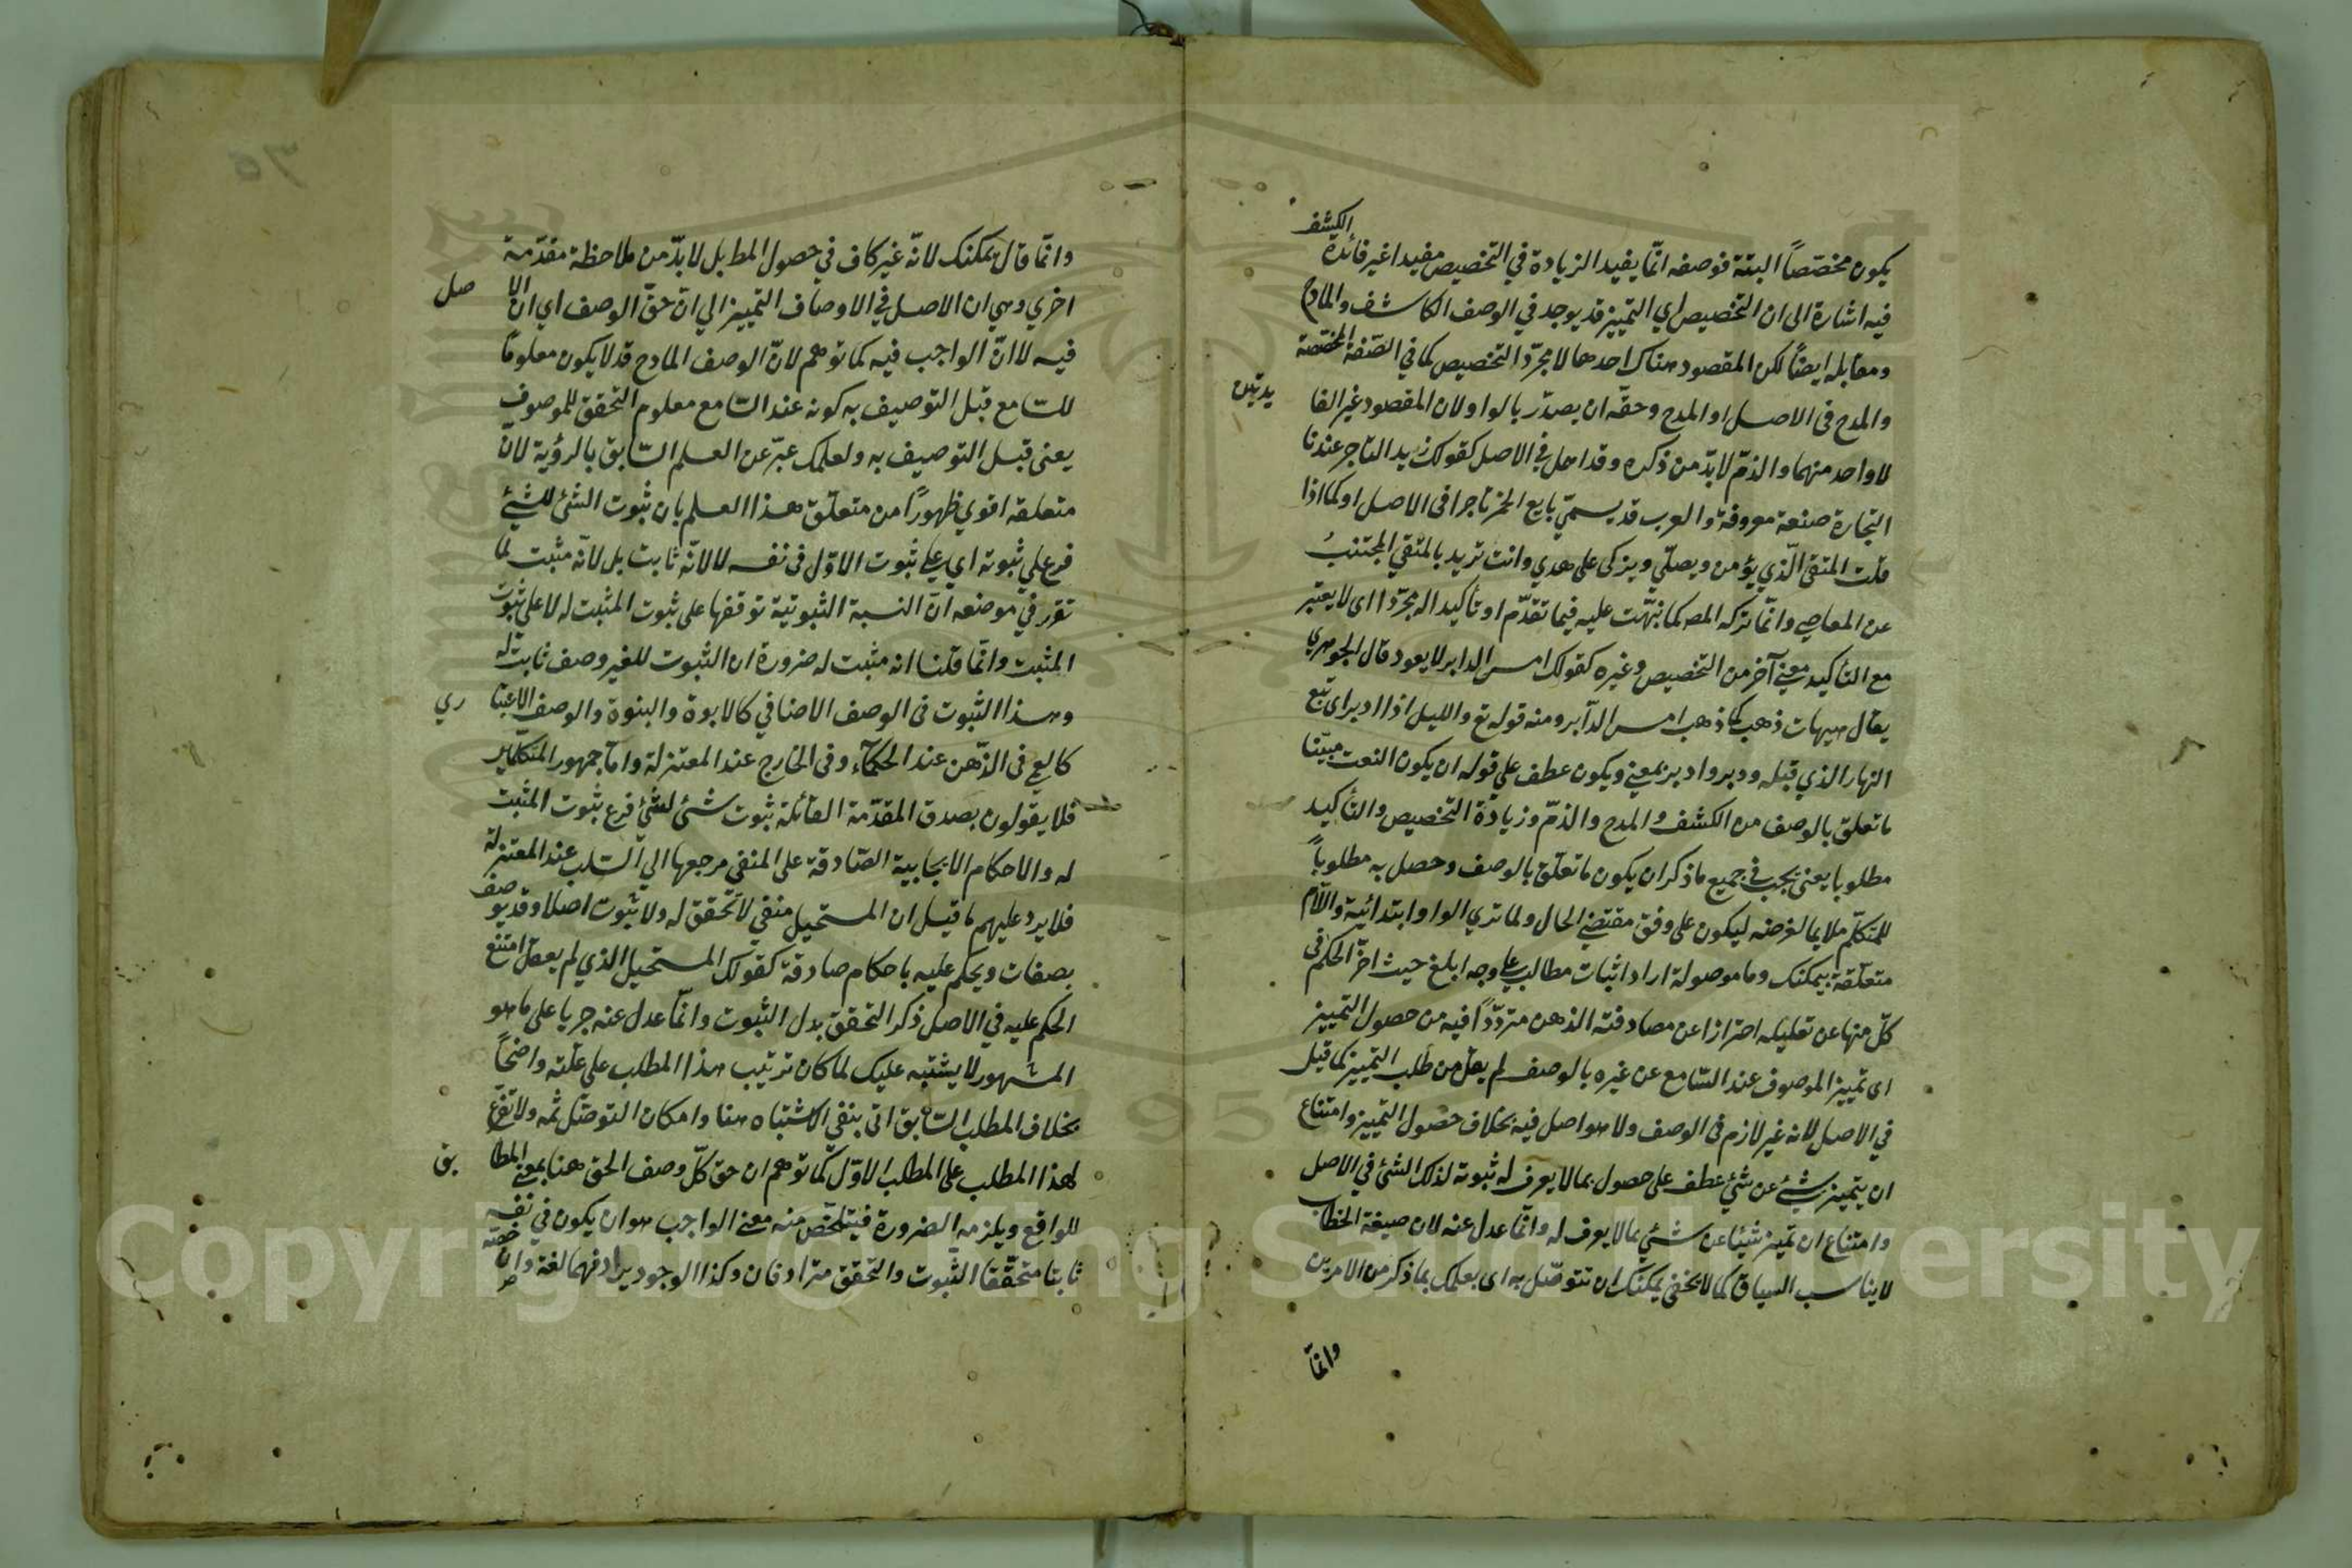 الكشف
يكون مخصّصاً البتة فوصفه انّما يفيد الزيادة في التخصيص مفيدا غير فائدة
فيه اشارة الى ان التخصيص اي التمييز قد يوجد في الوصف الكاشف والمادح
ومقابله ايضاً لكن المقصود هناك احدهما لا مجرّد التخصيص كما في الصّفة المخصّصة
والمدح في الاصل او المدح وحقّه ان يصدّر بالواو لان المقصود غير الفا يدتين
لا واحد منهما والذمّ لا بدّ من ذكره وقد اهمل في الاصل كقولك زيد التاجر عندنا
التجارة صنعة معروفة والعرب قد يسمّي بايع الخمر تاجرا في الاصل او كما اذا
قلت المتقي الّذي يؤمن ويصلّي ويزكى على هدي وانت تريد بالمتقي المجتنبُ
عن المعاصي وانّما تركه المصه كما نبّهت عليه فيما تقدّم او تأكيدا له مجرّدا اى لا يعتبر
مع التأكيد معنى آخر من التخصيص وغيره كقولك امس الدابر لا يعود قال الجوهري
يقال هيهات ذهب كما ذهب امس الدّابر ومنه قوله تع والليل اذا ادبر اى تبع
النهار الذي قبله ودبر وادبر بمعنى ويكون عطف على قوله ان يكون النعت مبيّنا
ما تعلق بالوصف من الكشف والمدح والذمّ وزيادة التخصيص والتأكيد
مطلوبا يعنى يجب في جميع ما ذكر ان يكون ما تعلّق بالوصف وحصل به مطلوباً
للمتكلّم ملايما لغرضه ليكون على وفق مقتضى الحال ولما ترى الواو ابتدائية واللّام
متعلّقة بيمكنك وما موصولة اراد اثبات مطالب على وجه ابلغ حيث اخّر الحكم في
كلّ منها عن تعليله احترازا عن مصادفته الذهن متردّداً فيه من حصول التمييز
اى تمييز الموصوف عند السّامع عن غيره بالوصف لم يقل من طلب التمييز كما قيل
في الاصل لانه غير لازم في الوصف ولا هو اصل فيه بخلاف حصول التمييز وامتناع
ان يتميز شئ عن شئ عطف على حصول بما لا يعرف له ثبوته لذلك الشئ في الاصل
وامتناع ان تميز شيئا عن شئ بما لا يعرف له وانّما عدل عنه لان صيغة الخطاب
لا يناسب السياق كما لا يخفى يمكنك ان تتوصّل به اى بعلمك بما ذكر من الامرين
وانّما
وانّما قال يمكنك لانّه غير كاف في حصول المط بل لا بدّ من ملاحظة مقدّمة
اخري وهي ان الاصل في الاوصاف التمييز الي انّ حقّ الوصف اي ان الا صل
فيه لا انّ الواجب فيه كما توهم لانّ الوصف المادح قد لا يكون معلوماً
للسّامع قبل التوصيف به كونه عند السّامع معلوم التحقق للموصوف
يعنى قبل التوصيف به ولعلّك عبّر عن العلم السّابق بالرؤية لانّ
متعلقه اقوي ظهوراً من متعلّق هذا العلم بان ثبوت الشئ للشئ
فرع على ثبوته اي على ثبوت الاوّل في نفسه لا لانّه ثابت بل لانّه مثبت لما
تقرر في موضعه انّ النسبة الثبوتية توقفها على ثبوت المثبت له لا على ثبوت
المثبت وانّما قلنا انه مثبت له ضرورة ان الثبوت للغير وصف ثابت له
وهذا الثبوت في الوصف الاضافي كالابوة والبنوة والوصف الاعتبا ري
كالعمى في الذّهن عند الحكماء وفي الخارج عند المعتزلة وامّا جمهور المتكلّمين
فلا يقولون بصدق المقدّمة القائلة ثبوت شئ لشئ فرع ثبوت المثبت
له والاحكام الايجابية الصّادقة على المنفي مرجعها الي السّلب عند المعتزلة
فلا يرد عليهم ما قيل ان المستحيل منفي لا تحقق له ولا ثبوت اصلا وقد يوصف
بصفات ويحكم عليه باحكام صادقة كقولك المستحيل الذي لم يعقل امتنع
الحكم عليه في الاصل ذكر التحقق بدل الثبوت وانّما عدل عنه جريا على ما هو
المشهور لا يشتبه عليك لما كان ترتيب هذا المطلب على علّته واضحاً
بخلاف المطلب السّابق اتى بنفي الاشتباه هنا وامكان التوصّل ثمه ولا تفرّع
لهذا المطلب على المطلب الاوّل كما توهم ان حق كلّ وصف الحق هنا بمعنى المطا بق
للواقع ويلزمه الضرورة فيتلخّص منه معنى الواجب هو ان يكون في نفسه
ثابتا متحقّقا الثّبوت والتحقق مترادفان وكذا الوجود يرادفهما لغة وان خصّه
Copyright © King Saud University